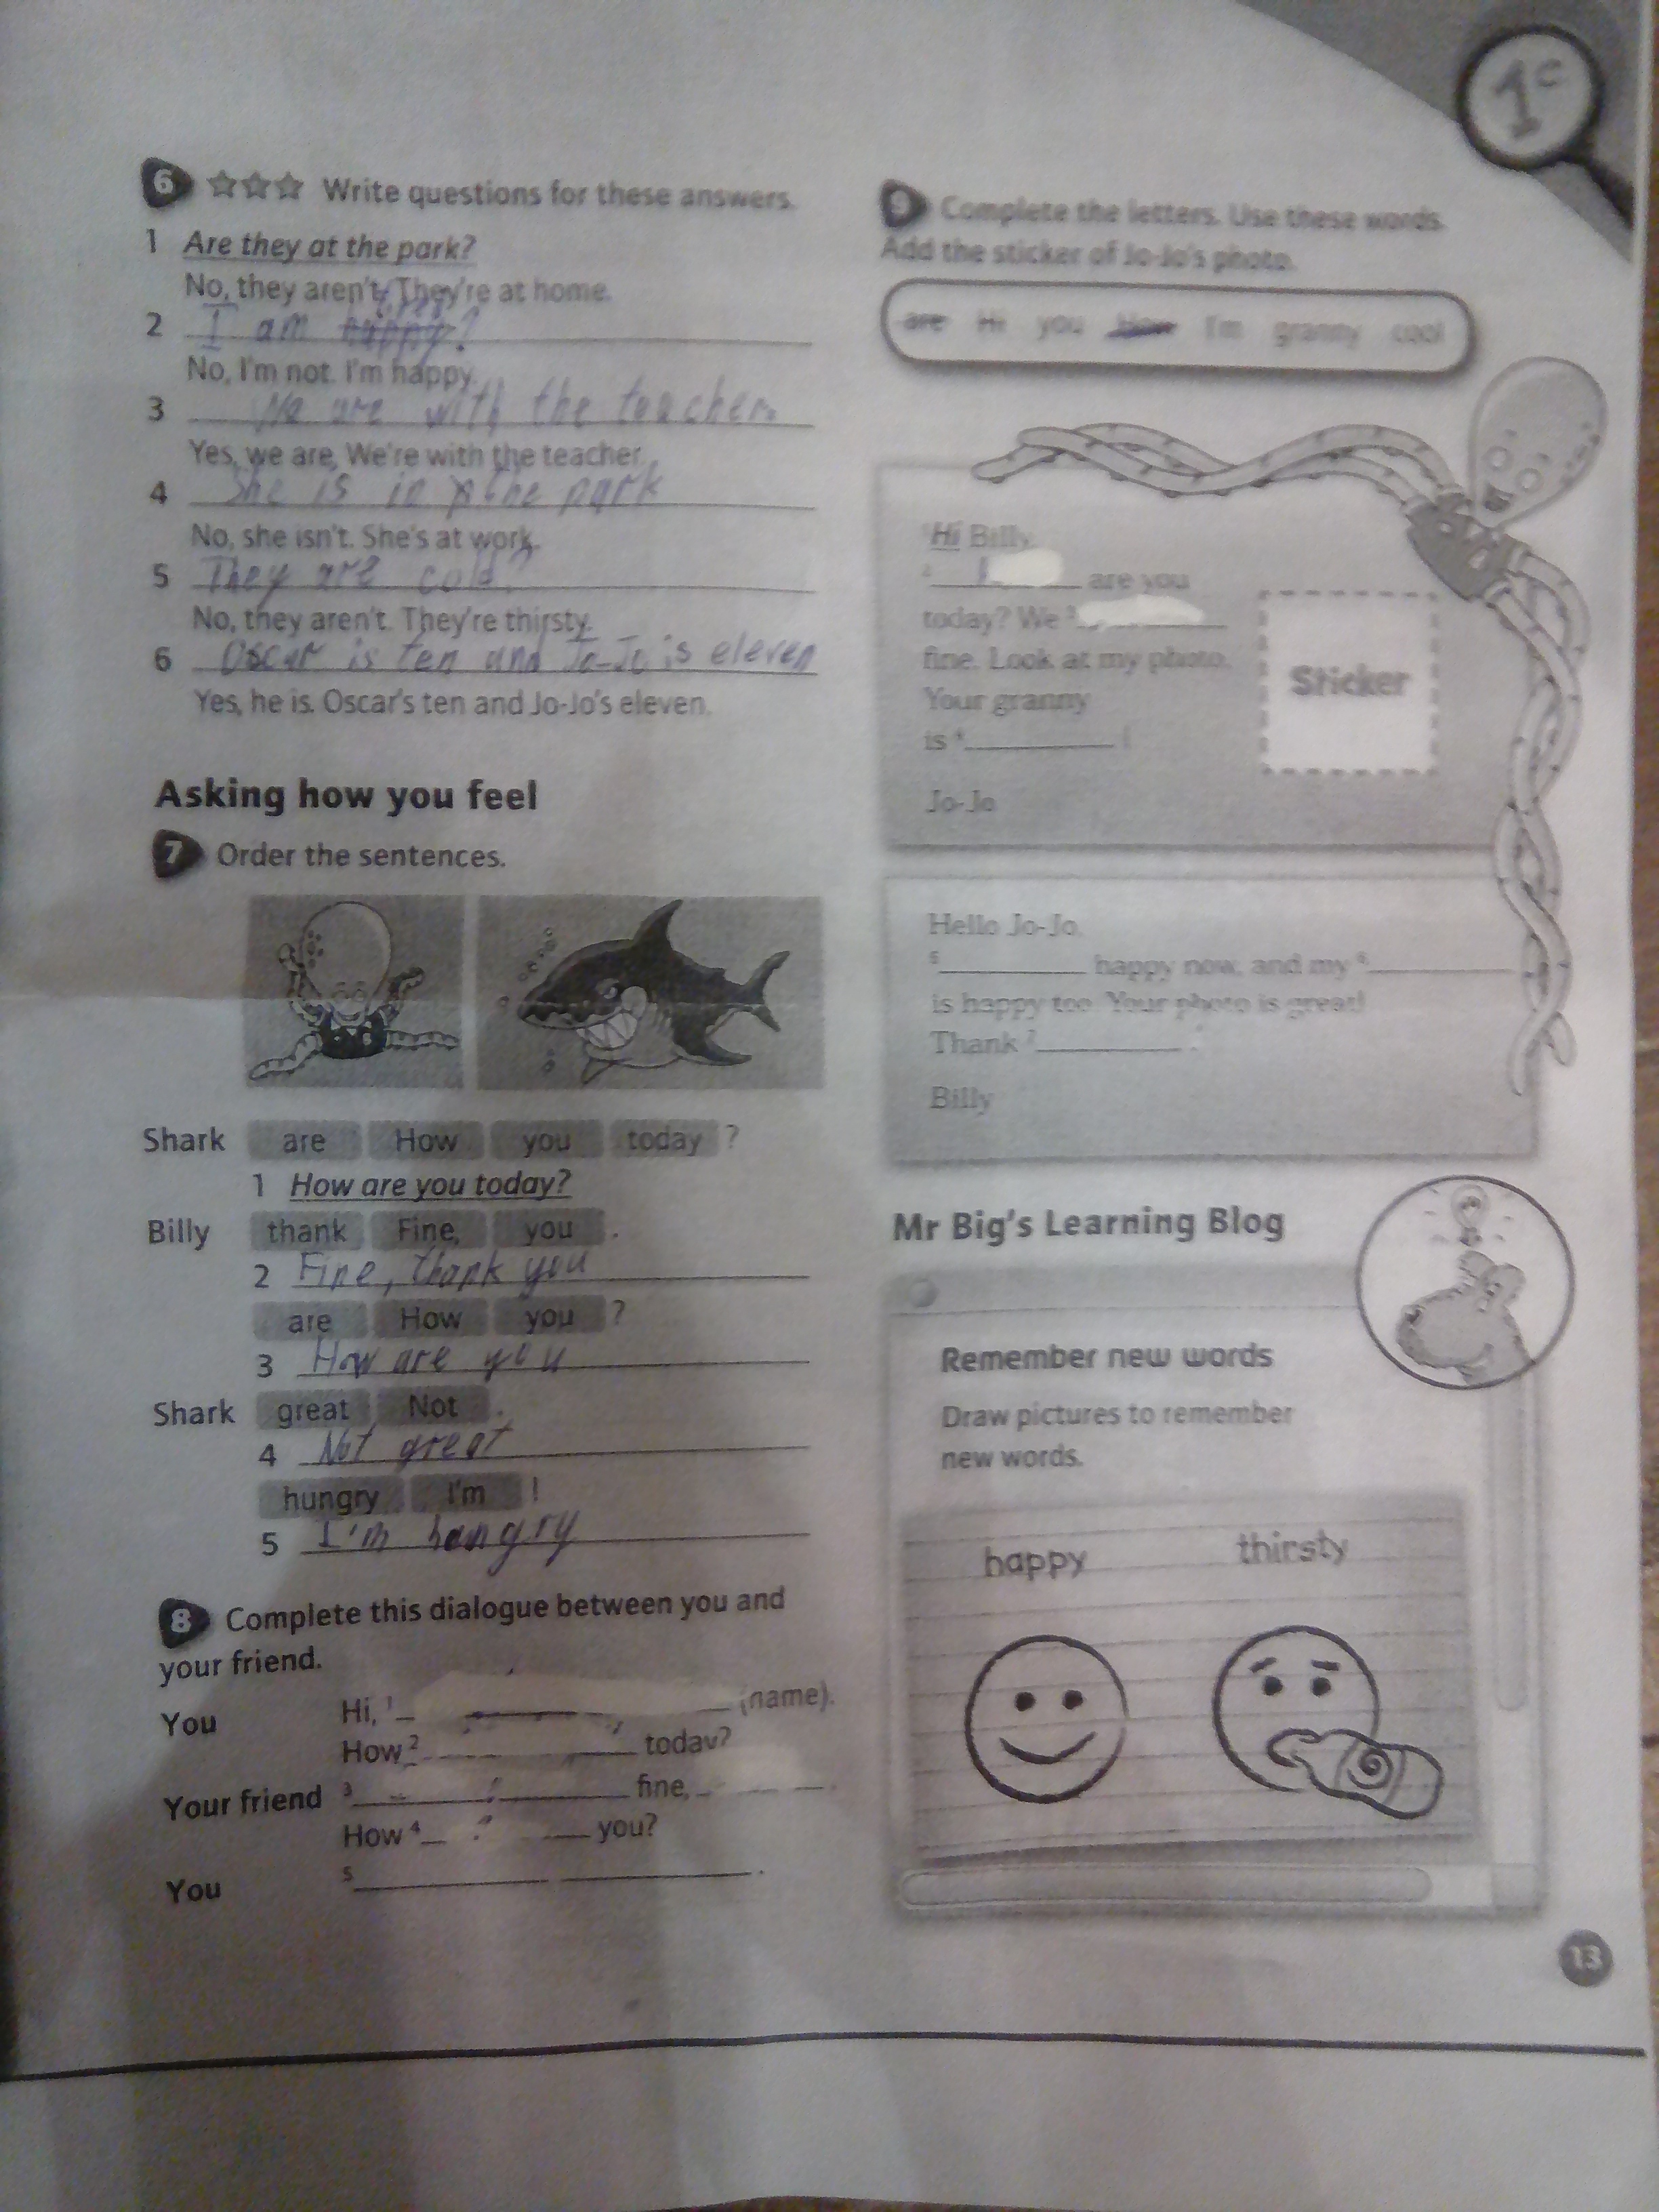 1c
6 ☆☆☆ Write questions for these answers.
1 Are they at the park?
No, they aren't. They're at home.
2 I am happy?
No, I'm not. I'm happy.
3 We are with the teacher.
Yes, we are. We're with the teacher.
4 She is in the park
No, she isn't. She's at work.
5 They are cold?
No, they aren't. They're thirsty.
6 Oscar is ten and Jo-Jo is eleven
Yes, he is. Oscar's ten and Jo-Jo's eleven.
Asking how you feel
7 Order the sentences.
Shark are How you today ?
1 How are you today?
Billy thank Fine, you .
2 Fine, thank you
are How you ?
3 How are you
Shark great Not .
4 Not great
hungry I'm !
5 I'm hangry
8 Complete this dialogue between you and
your friend.
You Hi, 1 (name).
How 2 today?
Your friend 3 fine,
How 4 you?
You 5 .
9 Complete the letters. Use these words.
Add the sticker of Jo-Jo's photo.
are Hi you How I'm granny cool
1 Hi Billy,
2 are you
today? We 3
fine. Look at my photo.
Your granny
is 4 !
Jo-Jo
Sticker
Hello Jo-Jo,
5 happy now, and my 6
is happy too. Your photo is great!
Thank 7 .
Billy
Mr Big's Learning Blog
Remember new words
Draw pictures to remember
new words.
happy thirsty
13